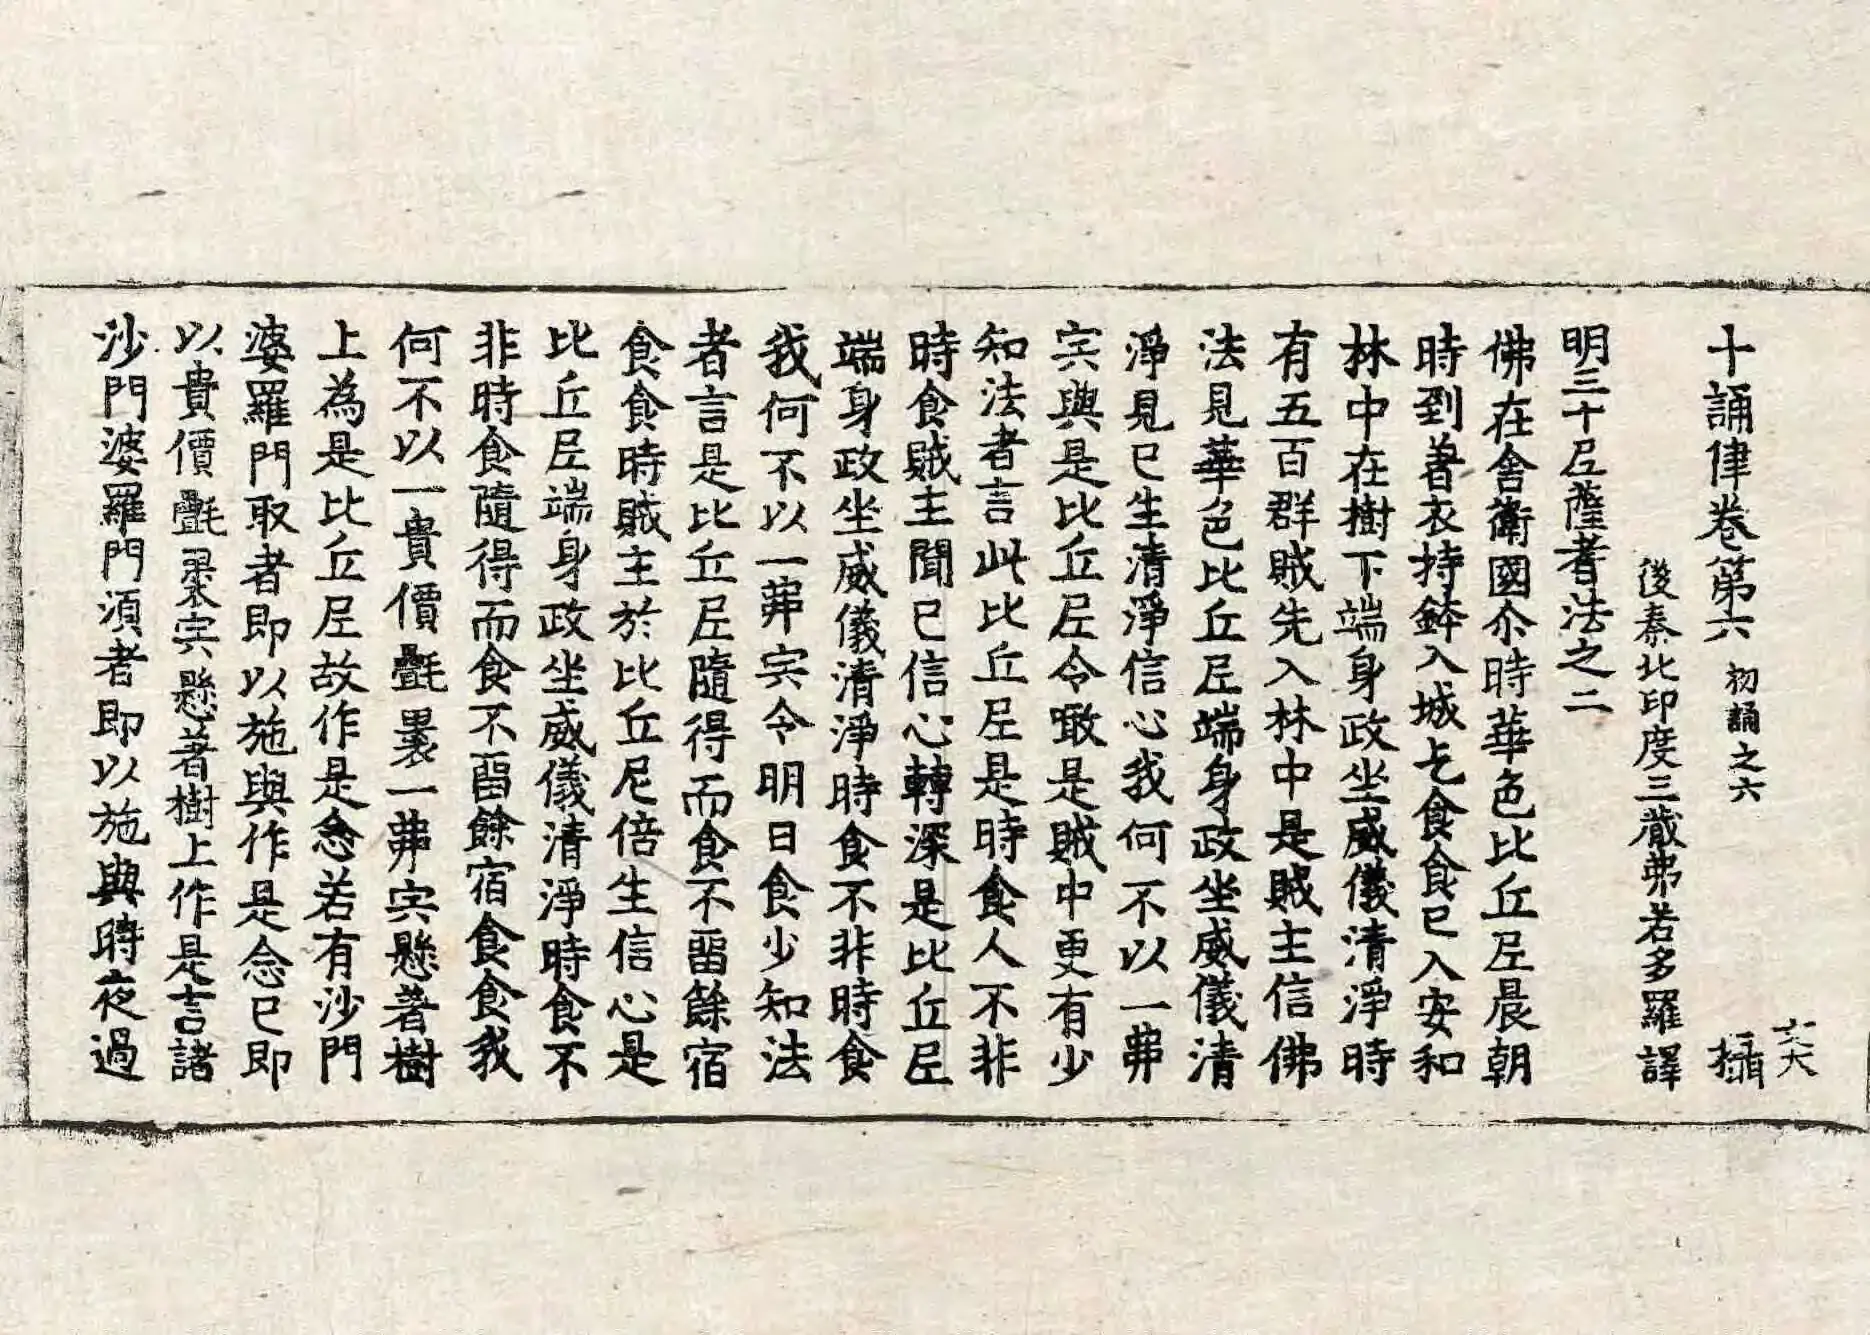 十誦律卷第六 初誦之六 攝
後秦北印度三藏弗若多羅譯
明三十尼薩耆法之二
佛在舍衛國尒時華色比丘尼晨朝
時到著衣持鉢入城乞食食已入安和
林中在樹下端身政坐威儀清淨時
有五百群賊先入林中是賊主信佛
法見華色比丘尼端身政坐威儀清
淨見已生清淨信心我何不以一弗
宍與是比丘尼令噉是賊中更有少
知法者言此比丘尼是時食人不非
時食賊主聞已信心轉深是比丘尼
端身政坐威儀清淨時食不非時食
我何不以一弗宍令明日食少知法
者言是比丘尼隨得而食不留餘宿
食食時賊主於比丘尼倍生信心是
比丘尼端身政坐威儀清淨時食不
非時食隨得而食不留餘宿食食我
何不以一貴價㲲裹一弗宍懸著樹
上為是比丘尼故作是念若有沙門
婆羅門取者即以施與作是念已即
以貴價㲲裹宍懸著樹上作是言諸
沙門婆羅門湏者即以施與時夜過